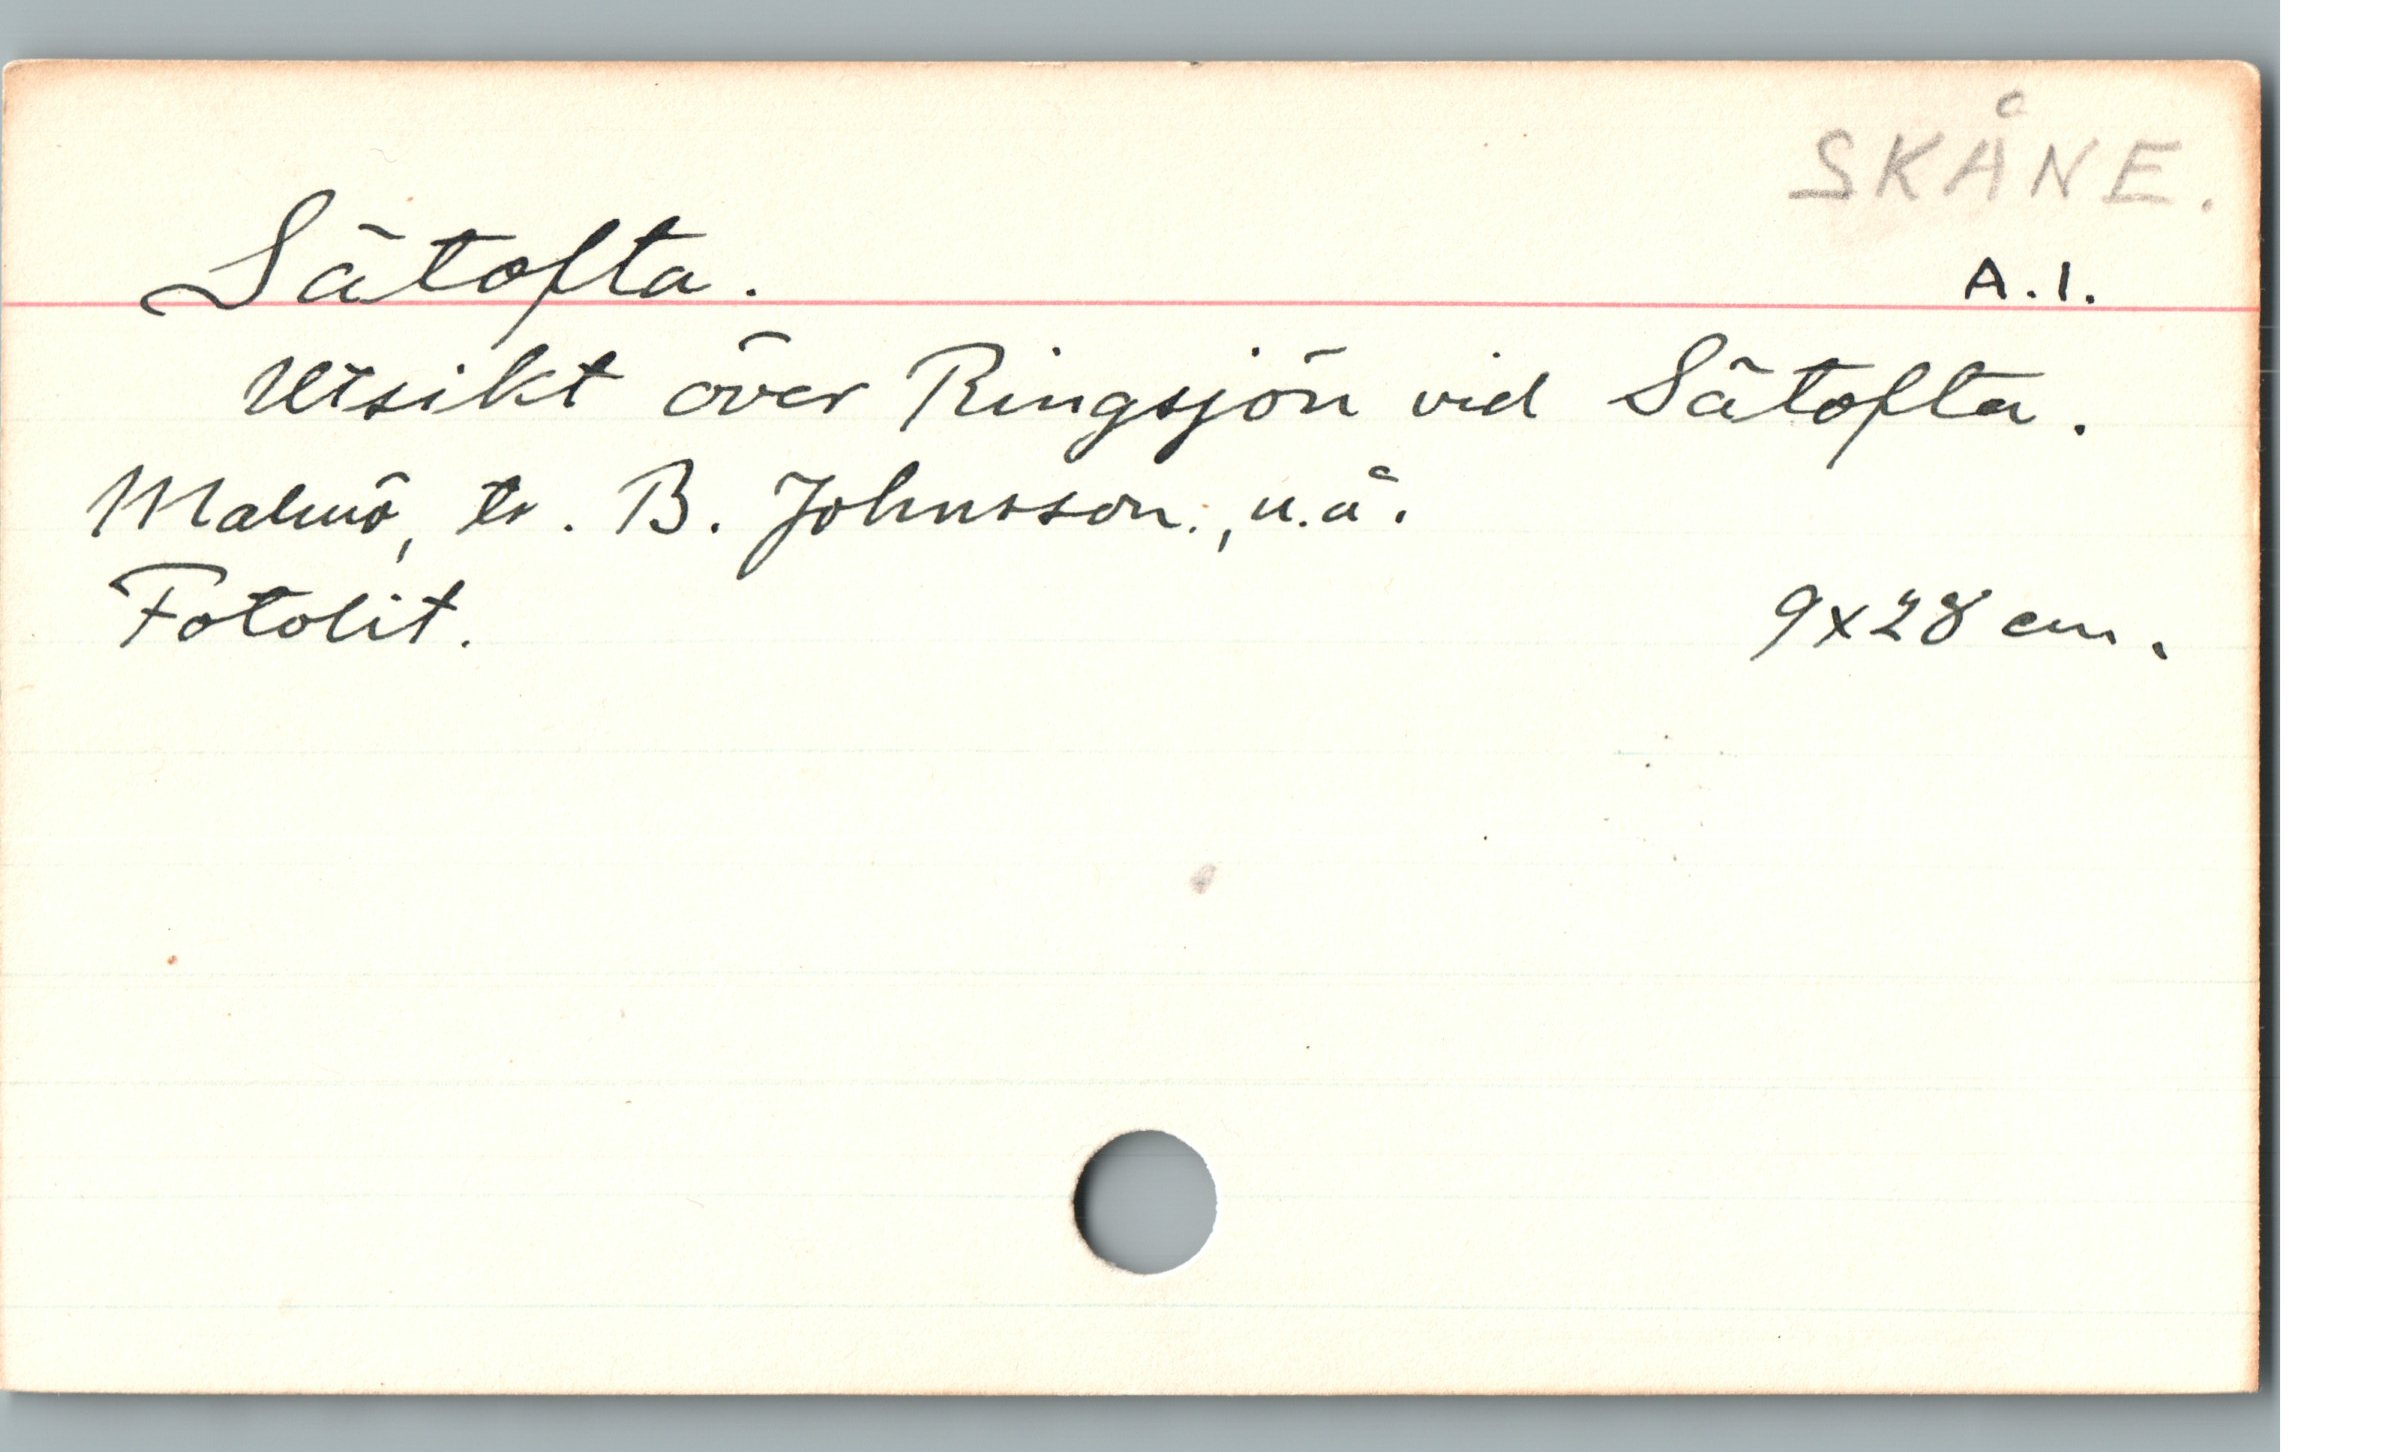 SKÅNE.
Sätofta.
A.1.
Utsikt över Ringsjön vid Sätofta.
Malmö, tr. B. Johnsson., u.å.
Fotolit.
9x28 cm.